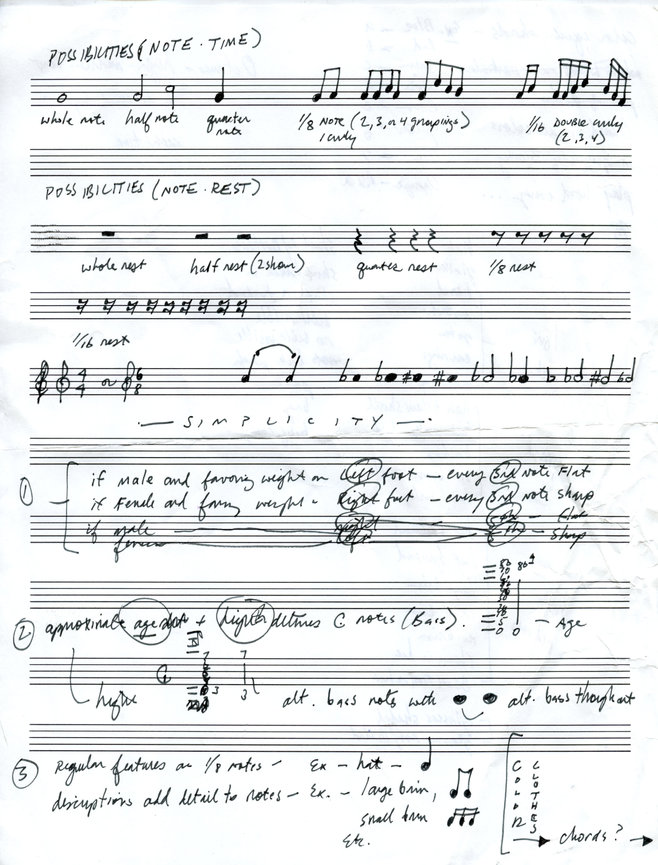 POSSIBILITIES (NOTE · TIME)
whole note half note quarter note 1/8 NOTE (2, 3, or 4 groupings) 1/16 DOUBLE curly
1 curly (2, 3, 4)
POSSIBILITIES (NOTE · REST)
whole rest half rest (2 shown) quarter rest 1/8 rest
1/16 rest
4/4 or 6/8
— SIMPLICITY —
① if male and favoring weight on left foot — every 3rd note Flat
if Female and favoring weight on Right foot — every 3rd note sharp
if male right 5th — Flat
female left 5th — Sharp
② approximate age + height C notes (Bass). 0 0 — Age
height 7 3 7 3 alt. bass notes with alt. bass throughout
③ Regular features as 1/8 notes — Ex — hat —
descriptions add detail to notes — Ex. — large brim,
small brim
Etc.
COLOR CLOTHES
chords?